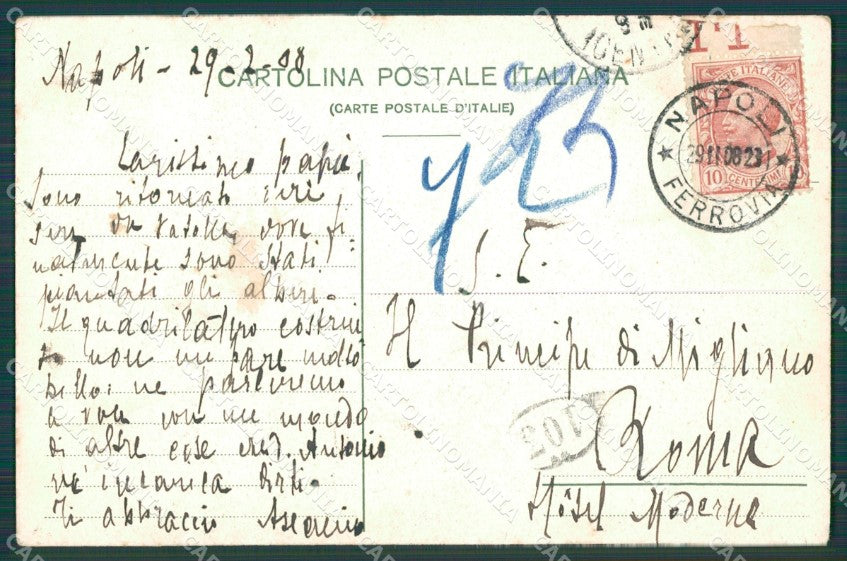 Napoli - 29-2-08
CARTOLINA POSTALE ITALIANA
(CARTE POSTALE D'ITALIE)
Carissimo papà,
sono ritornato ieri
sera da, dove fi-
nalmente sono stati
piantati gli alberi.
Il quadrilatero costrui
to non mi pare molto
bello; ne parleremo
a voce con un mondo
di altre cose. Antonio
m'incarica
Ti abbraccio Ascanio
S. E.
Il Principe di Migliano
Roma
Hôtel Moderne
NAPOLI
29 II 08 23
FERROVIA
10 CENTESIMI
POSTE ITALIANE
105
CARTOLINOMANIA